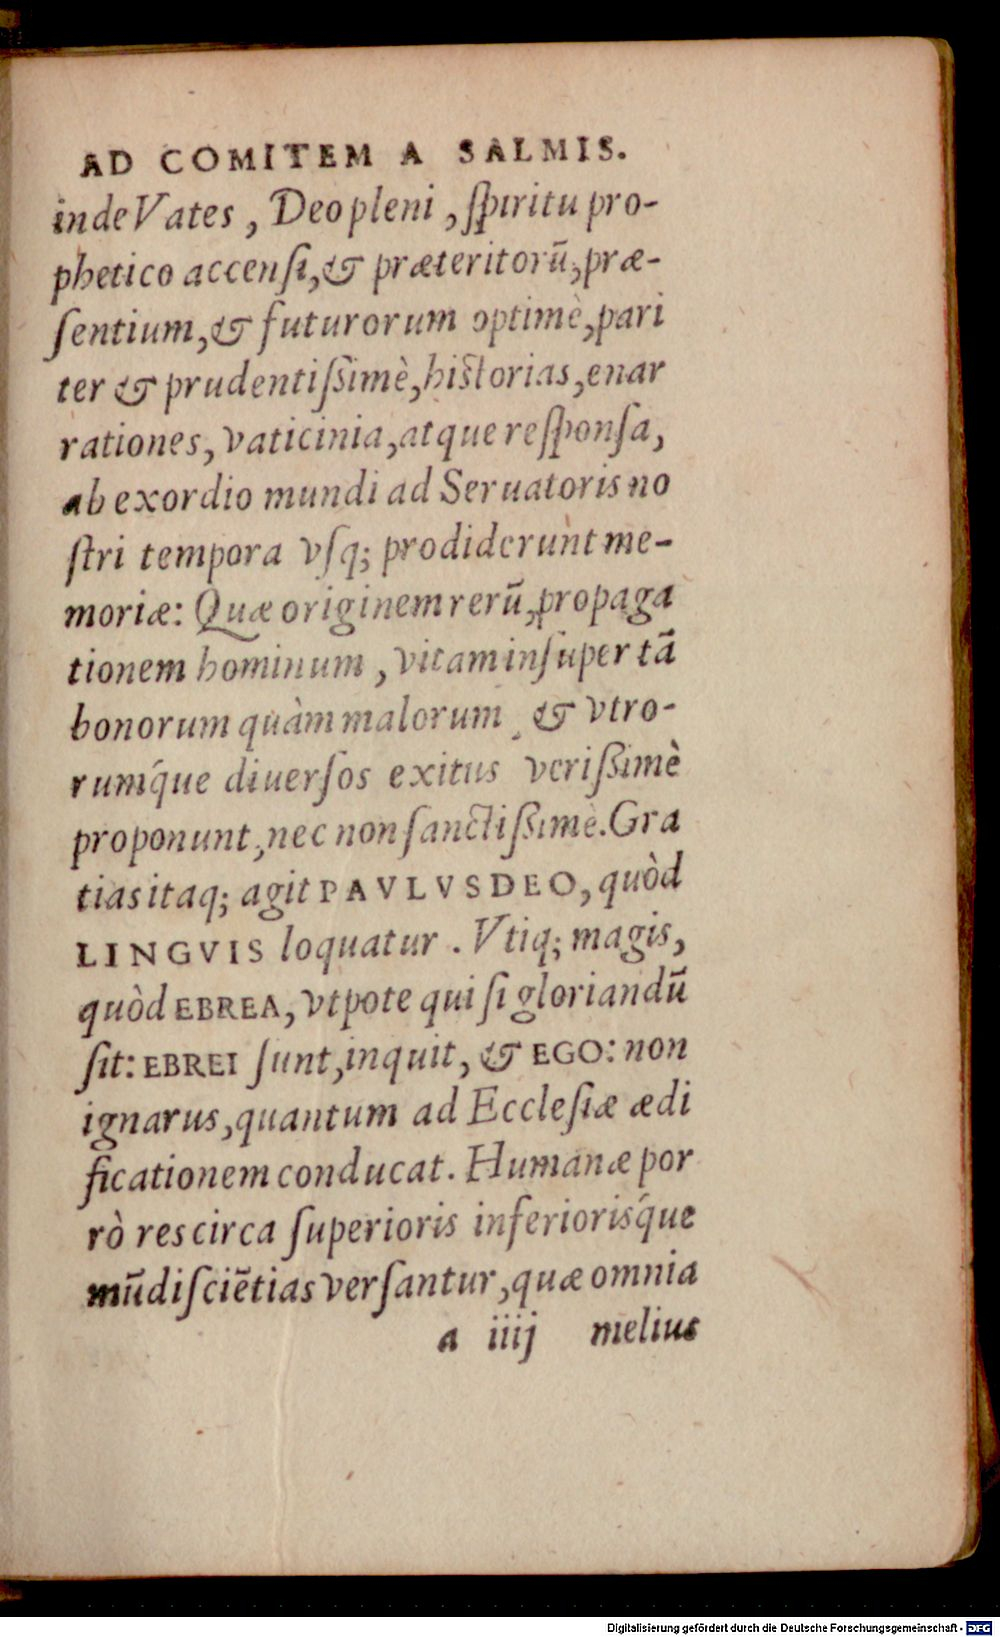 AD COMITEM A SALMIS.
inde Vates, Deo pleni, ſpiritu pro-
phetico accenſi, & præteritorũ, præ-
ſentium, & futurorum optimè, pari
ter & prudentiſſimè, hiſtorias, enar
rationes, vaticinia, atque reſponſa,
ab exordio mundi ad Seruatoris no
ſtri tempora vſq; prodiderunt me-
moriæ: Quæ originem rerũ, propaga
tionem hominum, vitam inſuper tã
bonorum quàm malorum, & vtro-
rumq́ue diuerſos exitus veriſſimè
proponunt, nec non ſanctiſſimè. Gra
tias itaq; agit PAVLVS DEO, quòd
LINGVIS loquatur. Vtiq; magis,
quòd EBREA, vtpote qui ſi gloriandũ
ſit: EBREI ſunt, inquit, & EGO: non
ignarus, quantum ad Eccleſiæ ædi
ficationem conducat. Humanæ por
rò res circa ſuperioris inferiorisq́ue
mũdi ſciẽtias verſantur, quæ omnia
a iiij melius
Digitalisierung gefördert durch die Deutsche Forschungsgemeinschaft - DFG